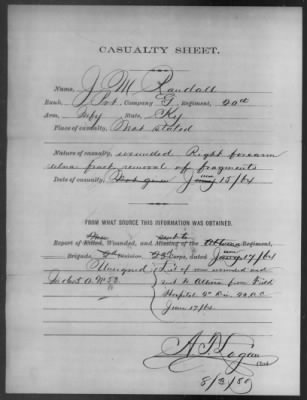 CASUALTY SHEET.
Name, J. M. Randall
Rank, Pvt. Company G, Regiment, 20th
Arm, Infy State, Ky
Place of casualty, Not stated
Nature of casualty, wounded Right forearm
ulna fract removal of fragments
Date of casualty, June 15/64
FROM WHAT SOURCE THIS INFORMATION WAS OBTAINED.
Report of Killed, Wounded, and Missing of the Regiment,
Brigade, Division, Corps, dated June 17/64
Unsigned List of men wounded and
sent to from Field
Hospital 2d Div. 20 A.C.
June 17/64
A. P. Logan
Clerk
8/3/80